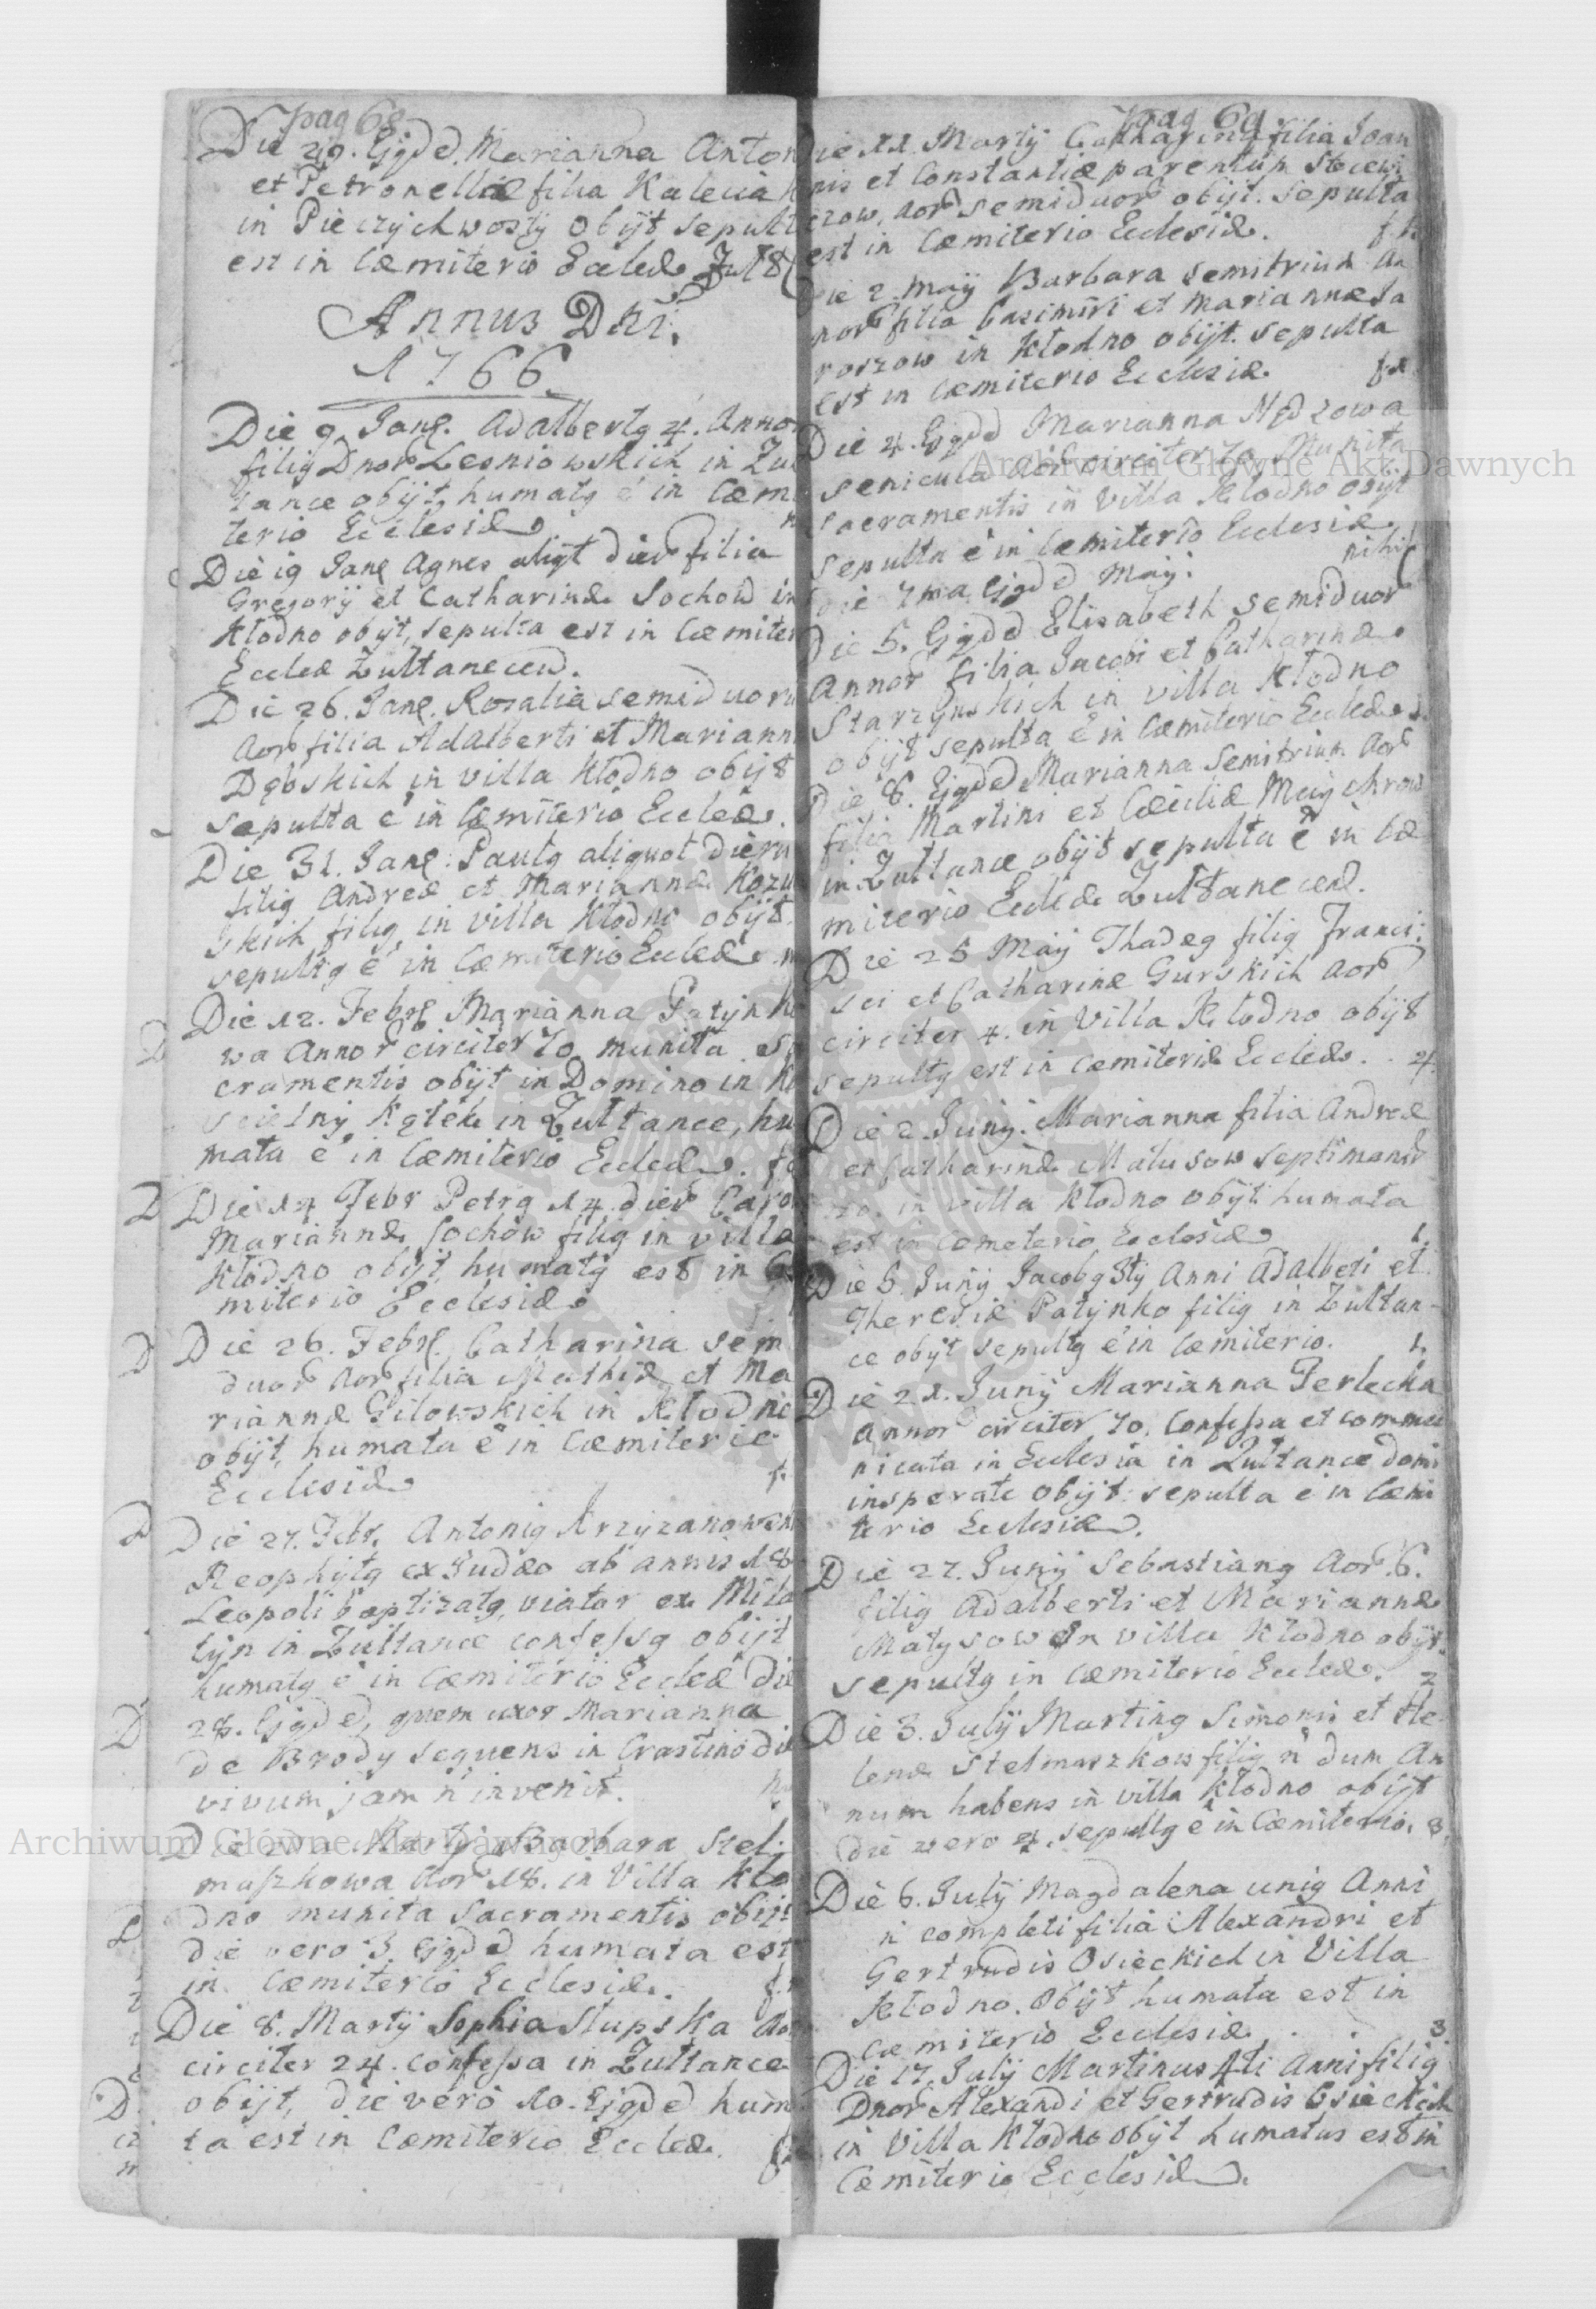 pag 68
Die 29. Ejgdd. Marianna Anton
et Petronellæ filia Kalecia
in Pieczychwosty obijt sepult
est in Cæmiterio Eccleæ
Annus Dni.
1766
Die 9. Janę. Adalbertg 4. Anno
filig Dnor Lesniowskich in Żul
tance obijt, humatg e in Cæm
terio Ecclesiæ
Die 19 Janę Agnes aliqt dier filia
Gregorij et Catharinæ Sochow in
Kłodno obijt, sepulta est in Cæmiter
Eccleæ Żultanecen.
Die 26. Janę. Rosalia semiduoru
Aor filia Adalberti et Mariann
Dębskich in villa Kłodno obijt
sepulta e in Cæmiterio Eccleæ.
Die 31. Janę. Paulg aliquot dieru
filig Andreæ et Mariannæ Kozu
skich filig in villa Kłodno obijt.
sepultg e in Cæmiterio Eccleæ.
Die 12. Febrę Marianna Patynko
wa Annor circiter 70 munita Sa
cramentis obijt in Domino in
scielny Kątek in Żultance, hu
mata e in Cæmiterio Eccleæ.
Die 14 Febr Petrg 14 dier
Mariannæ Sochow filig in villa
Kłodno obijt, humatg est in Cæ
miterio Ecclesiæ
Die 26. Febrę. Catharina sem
duor Aor filia Mathiæ et Ma
riannæ Gilowskich in Kłodno
obijt, humata e in Cæmiterio
Ecclesiæ
Die 27. Febr. Antonig Krzyzanowsk
Neophytg ex Judæo ab annis 18
Leopoli baptizatg, viator ex Mila
tyn in Żultance confessg obijt
humatg e in Cæmiterio Eccleæ die
28. Ejgdd, quem uxor Marianna
de Brody sequens in Crastino die
vivum jam n invenit.
Die 2 Martij Barbara Stel
maszkowa Aor 18. in Villa Kło
dno munita Sacramentis obijt
die vero 3. Ejgdd humata est
in Cæmiterio Ecclesiæ.
Die 8. Martij Sophia Slupska Aor
circiter 24. confessa in Żultance
obijt, die vero 10. Ejgdd hum
ta est in Cæmiterio Eccleæ.
pag 69
Die 11. Martij Catharina filia Joan
nis et Constantiæ parentum Stecewi
czow, Aor semiduor obijt. sepulta
est in Cæmiterio Ecclesiæ.
Die 2. Maij Barbara semitrium An
nor filia Casimiri et Mariannæ Ja
roszow in Kłodno obijt. sepulta
est in Cæmiterio Ecclesiæ.
Die 4. Ejgdd Marianna Nędzowa
senicula Aor circiter 70 Munita
Sacramentis in villa Kłodno obijt
sepulta e in Cæmiterio Ecclesiæ
die 7ma Ejgdd Maij. nihil
Die 5. Ejgdd Elisabeth semiduor
Annor filia Jacobi et Catharinæ
Starzynskich in villa Kłodno
obijt sepulta e in Cæmiterio Eccleæ.
Die 8. Ejgdd Marianna Semitrium Aor
filia Martini et Cæciliæ Maychrow
in Żultance obijt sepulta e in Cæ
miterio Eccleæ Żultanecen.
Die 25 Maij Thadeg filig Franci:
sci et Catharinæ Gurskich Aor
circiter 4. in Villa Kłodno obijt
sepultg est in Cæmiterio Eccleæ. 4.
Die 2 Junij. Marianna filia Andreæ
et Catharinæ Matusow septimanar
10. in villa Kłodno obijt humata
est in Cæmeterio Ecclesiæ 1.
Die 5. Junij Jacobg 3tij Anni Adalberti et
Theresiæ Patynko filig in Żultan-
ce obijt sepultg e in Cæmiterio. 1.
Die 21. Junij Marianna Perlecka
Annor circiter 70. Confessa et commu
nicata in Ecclesia in Żultance domi
insperate obijt: sepulta e in Cæmi
terio Ecclesiæ.
Die 27. Junij Sebastiang Aor 6.
filig Adalberti et Mariannæ
Matysow in villa Kłodno obijt.
sepultg in Cæmiterio Eccleæ. 2
Die 3. Julij Marting Simonis et He
lenæ Stelmaszkow filig n dum An
num habens in villa Kłodno obijt
die vero 4. sepultg e in Cæmiterio. 3.
Die 6. Julij Magdalena unig Anni
n completi filia Alexandri et
Gertrudis Osieckich in Villa
Kłodno. Obijt humata est in
Cæmiterio Ecclesiæ. 3.
Die 17. Julij Martinus 4ti Anni filig
Dnor Alexandi et Gertrudis Osieckich
in Villa Kłodno obijt humatus est in
Cæmiterio Ecclesiæ.
Archiwum Główne Akt Dawnych
Archiwum Główne Akt Dawnych